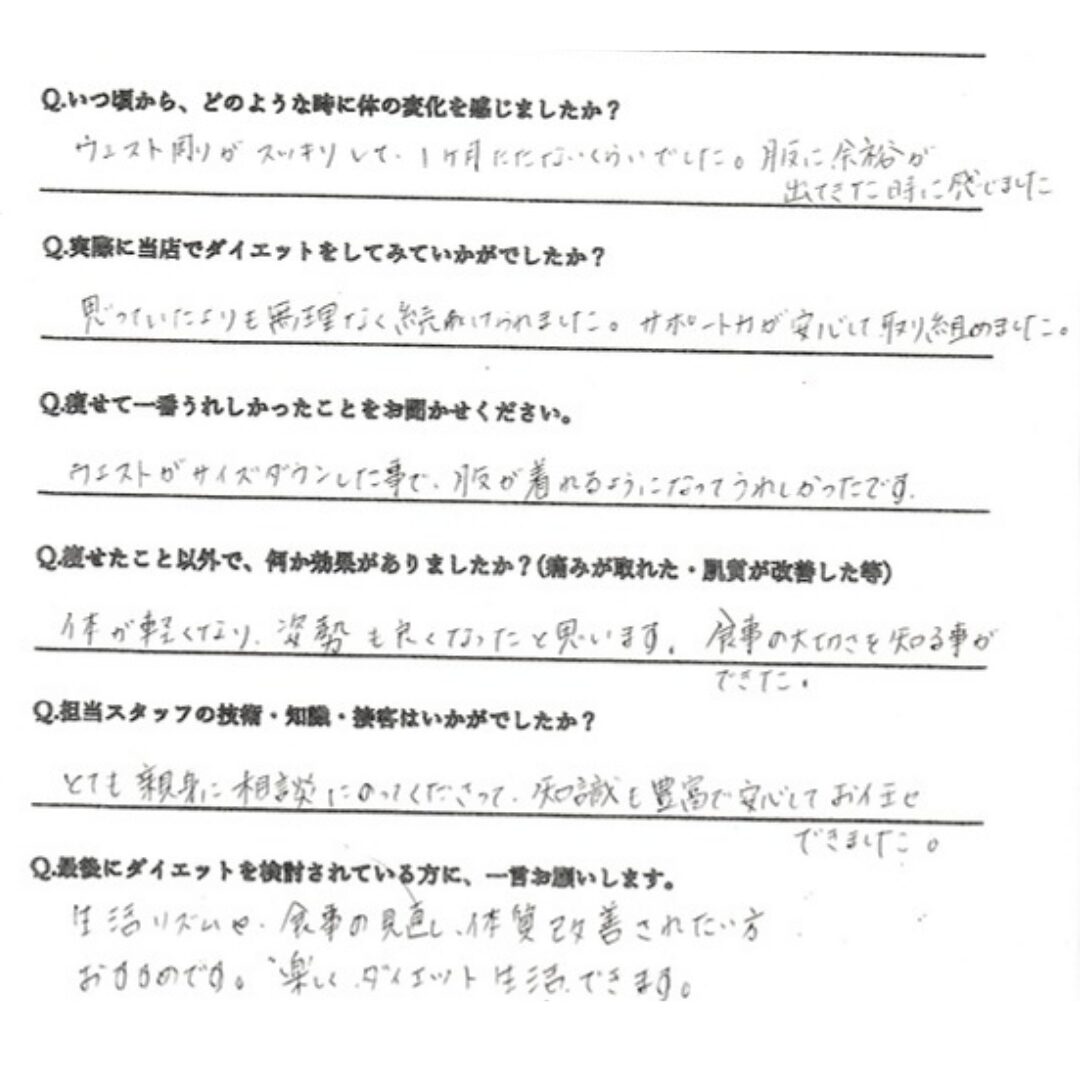 Q.いつ頃から、どのような時に体の変化を感じましたか？
ウエスト周りがスッキリして、1ヶ月たたないくらいでした。服に余裕が
出てきた時に感じました
Q.実際に当店でダイエットをしてみていかがでしたか？
思っていたよりも無理なく続けられました。サポート力が安心して取り組めました。
Q.痩せて一番うれしかったことをお聞かせください。
ウエストがサイズダウンした事で、服が着れるようになってうれしかったです。
Q.痩せたこと以外で、何か効果がありましたか？（痛みが取れた・肌質が改善した等）
体が軽くなり、姿勢も良くなったと思います。食事の大切さを知る事が
できた。
Q.担当スタッフの技術・知識・接客はいかがでしたか？
とても親身に相談にのってくださって、知識も豊富で安心してお任せ
できました。
Q.最後にダイエットを検討されている方に、一言お願いします。
生活リズムや、食事の見直し、体質改善されたい方
おすすめです。楽しく、ダイエット生活できます。